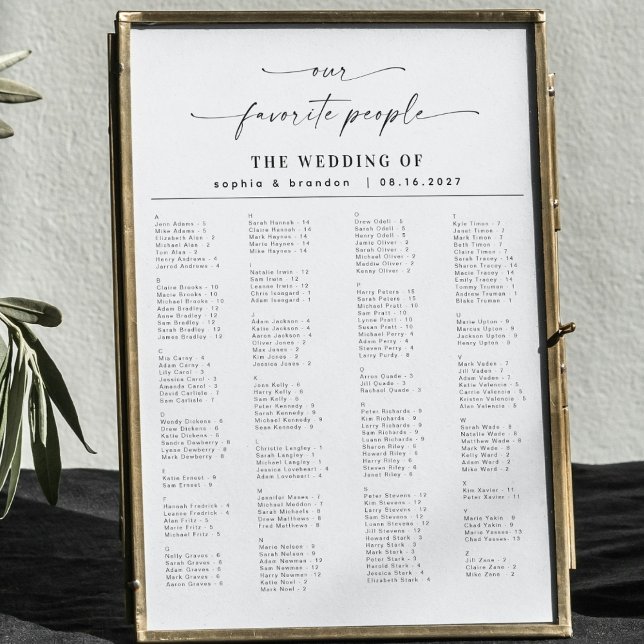 our
favorite people
THE WEDDING OF
sophia & brandon | 08.16.2027
A
Jenn Adams - 5
Mike Adams - 5
Elizabeth Alan - 2
Michael Alan - 2
Tom Alan - 2
Henry Andrews - 4
Jarrod Andrews - 4
B
Claire Brooks - 10
Macie Brooks - 10
Michael Brooks - 10
Adam Bradley - 12
Anne Bradley - 12
Sam Bradley - 12
Sarah Bradley - 12
James Bradley - 12
C
Mia Carny - 4
Adam Carny - 4
Lily Carol - 3
Jessica Carol - 3
Amanda Carol - 3
David Carlisle - 2
Sam Carlisle - 2
D
Wendy Dickens - 6
Drew Dickens - 6
Katie Dickens - 6
Sandra Dewberry - 8
Lynn Dewberry - 8
Mark Dewberry - 8
E
Katie Ernest - 9
Sam Ernest - 9
F
Hannah Fredrick - 4
Leanne Fredrick - 4
Alan Fritz - 5
Marie Fritz - 5
Michael Fritz - 5
G
Nelly Graves - 5
Sarah Graves - 5
Adam Graves - 5
Mark Graves - 5
Aaron Graves - 5
H
Sarah Hannah - 14
Claire Hannah - 14
Mark Haynes - 14
Marie Haynes - 14
Mike Haynes - 14
I
Natalie Irwin - 12
Sam Irwin - 12
Leanne Irwin - 12
Chris Isagard - 1
Adam Isengard - 1
J
Adam Jackson - 4
Katie Jackson - 4
Aaron Jackson - 4
Oliver Jones - 2
Max Jones - 2
Kim Jones - 2
Jessica Jones - 2
K
Jenn Kelly - 6
Harry Kelly - 6
Sam Kelly - 6
Peter Kennedy - 9
Sarah Kennedy - 9
Michael Kennedy - 9
Sean Kennedy - 9
L
Christie Langley - 1
Sarah Langley - 1
Michael Langley - 1
Adam Loveheart - 4
Jessica Loveheart - 4
M
Jennifer Manes - 7
Michael Meddon - 7
Sarah Michaels - 7
Drew Matthews - 8
Fred Matthews - 8
N
Marie Nelson - 9
Sarah Nelson - 9
Adam Newman - 12
Sam Newman - 12
Harry Newman - 12
Katie Noel - 2
Mark Noel - 2
O
Drew Odell - 5
Sarah Odell - 5
Henry Odell - 5
Jamie Oliver - 2
Sarah Oliver - 2
Michael Oliver - 2
Maddie Oliver - 2
Kenny Oliver - 2
P
Harry Peters - 15
Sarah Peters - 15
Michael Pratt - 10
Sam Pratt - 10
Lynn Pratt - 10
Susan Pratt - 10
Mark Perry - 4
Steven Perry - 4
Larry Purdy - 8
Q
Aaron Quade - 3
Jill Quade - 3
Rachael Quad - 3
R
Peter Richards - 9
Kim Richards - 9
Larry Richards - 9
Sam Richards - 9
Luann Richards - 9
Sharon Riley - 2
Howard Riley - 2
Harry Riley - 2
Steven Riley - 2
Janet Riley - 2
S
Peter Stevens - 12
Kim Stevens - 12
Larry Stevens - 12
Sam Stevens - 12
Luann Stevens - 12
Jill Stevens - 12
Howard Stark - 2
Harry Stark - 2
Mark Stark - 2
Peter Stark - 2
Harold Stark - 2
Jessica Stark - 2
Elizabeth Stark - 2
T
Kyle Timon - 7
Janet Timon - 7
Mark Timon - 7
Beth Timon - 7
Claire Timon - 7
Sarah Tracey - 4
Sharon Tracey - 4
Macie Tracey - 4
Emily Tracey - 4
Tommy Truman - 1
Andrew Truman - 1
Blake Truman - 1
U
Marie Upton - 9
Marcus Upton - 9
Jackson Upton - 9
Henry Upton - 9
V
Mark Vaden - 7
Jill Vaden - 7
Adam Vaden - 7
Katie Valencia - 5
Carrie Valencia - 5
Kristen Valencia - 5
Alan Valencia - 5
W
Sarah Wade - 8
Natalie Wade - 8
Matthew Wade - 8
Mark Wade - 8
Kelly Ward - 2
Adam Ward - 2
Mike Ward - 2
X
Kim Xavier - 11
Peter Xavier - 11
Y
Marie Yakin - 9
Chad Yakin - 9
Mary Yasses - 13
Chad Yasses - 13
Z
Jill Zane - 2
Claire Zane - 2
Mike Zane - 2